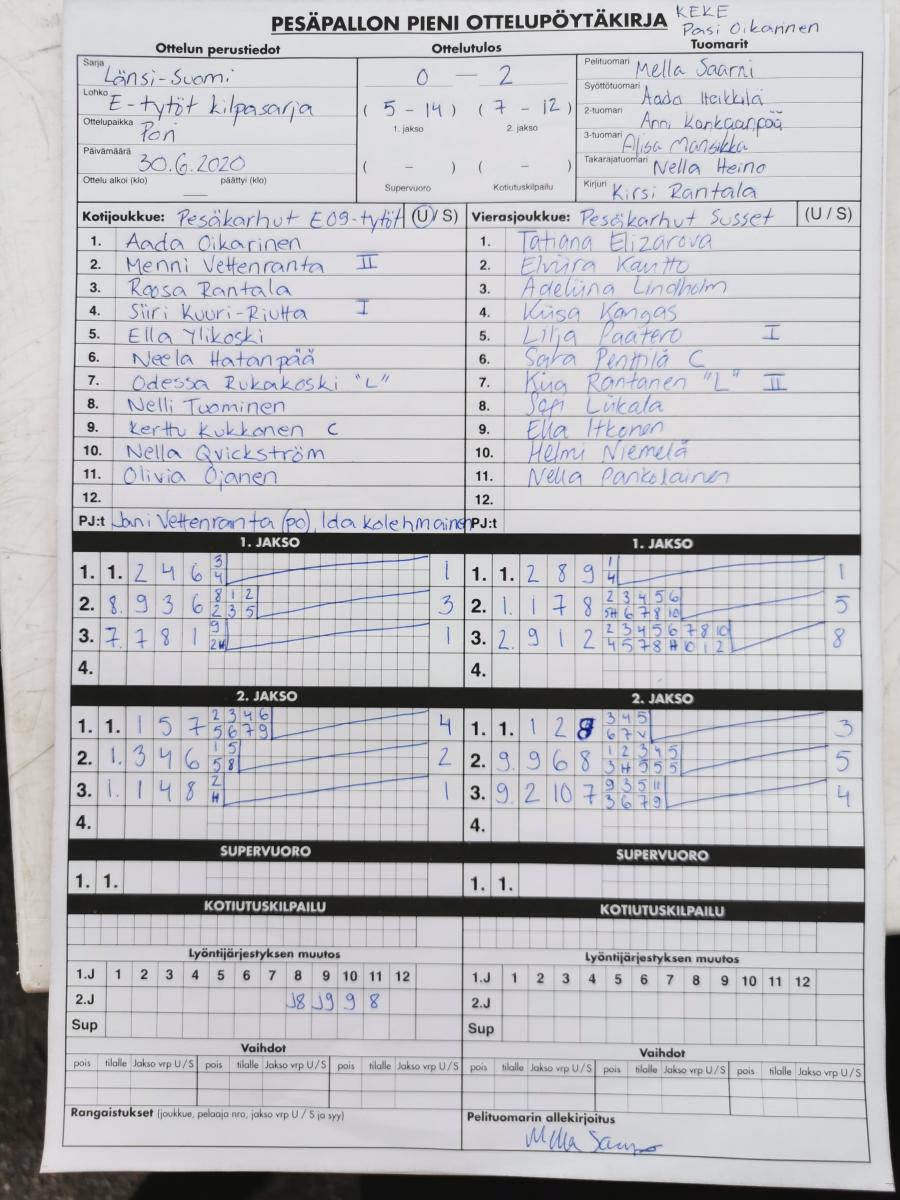 PESÄPALLON PIENI OTTELUPÖYTÄKIRJA
KEKE
Pasi Oikarinen
Ottelun perustiedot
Sarja Länsi-Suomi
Lohko E-tytöt kilpasarja
Ottelupaikka Pori
Päivämäärä 30.6.2020
Ottelu alkoi (klo) päättyi (klo)
Ottelutulos
0 — 2
( 5 - 14 ) ( 7 - 12 )
1. jakso 2. jakso
( - ) ( - )
Supervuoro Kotiutuskilpailu
Tuomarit
Pelituomari Mella Saarni
Syöttötuomari Aada Heikkilä
2-tuomari Anni Kankaanpää
3-tuomari Alisa Mansikka
Takarajatuomari Nella Heino
Kirjuri Kirsi Rantala
Kotijoukkue: Pesäkarhut E09-tytöt (U / S)
1. Aada Oikarinen
2. Menni Vettenranta II
3. Roosa Rantala
4. Siiri Kuuri-Riutta I
5. Ella Ylikoski
6. Neela Hatanpää
7. Odessa Rukakoski "L"
8. Nelli Tuominen
9. Kerttu Kukkonen C
10. Nella Qvickström
11. Olivia Ojanen
12.
PJ:t Jani Vettenranta (po), Ida Kolehmainen
Vierasjoukkue: Pesäkarhut Susset (U / S)
1. Tatiana Elizarova
2. Elviira Kautto
3. Adeliina Lindholm
4. Kiisa Kangas
5. Lilja Paatero I
6. Sara Penttilä C
7. Kiia Rantanen "L" II
8. Sofi Liikala
9. Ella Itkonen
10. Helmi Niemelä
11. Nella Pankolainen
12.
PJ:t
1. JAKSO
1. 1. 2 4 6 3 1
4
2. 8. 9 3 6 8 1 2 3
2 3 5
3. 7. 7 8 1 9 1
2H
4.
1. JAKSO
1. 1. 2 8 9 1 1
4
2. 1. 1 7 8 2 3 4 5 6 5
5H 6 7 8 10
3. 2. 9 1 2 2 3 4 5 6 7 8 10 8
4 5 7 8 H 10 1 2
4.
2. JAKSO
1. 1. 1 5 7 2 3 4 6 4
5 6 7 9
2. 1. 3 4 6 1 5 2
5 8
3. 1. 1 4 8 2 1
H
4.
2. JAKSO
1. 1. 1 2 8 3 4 5 3
6 7 V
2. 9. 9 6 8 1 2 3 4 5 5
3 H 5 5 5
3. 9. 2 10 7 9 3 5 11 4
3 6 7 9
4.
SUPERVUORO
1. 1.
SUPERVUORO
1. 1.
KOTIUTUSKILPAILU
KOTIUTUSKILPAILU
Lyöntijärjestyksen muutos
1.J 1 2 3 4 5 6 7 8 9 10 11 12
2.J J8 J9 9 8
Sup
Lyöntijärjestyksen muutos
1.J 1 2 3 4 5 6 7 8 9 10 11 12
2.J
Sup
Vaihdot
pois tilalle Jakso vrp U / S pois tilalle Jakso vrp U / S pois tilalle Jakso vrp U / S
Vaihdot
pois tilalle Jakso vrp U / S pois tilalle Jakso vrp U / S pois tilalle Jakso vrp U / S
Rangaistukset (joukkue, pelaaja nro, jakso vrp U / S ja syy)
Pelituomarin allekirjoitus